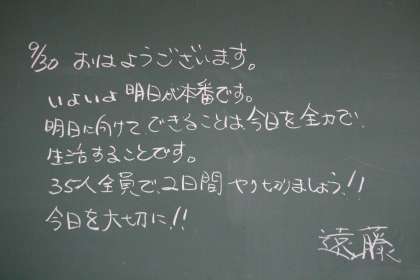 9/30 おはようございます。
いよいよ明日が本番です。
明日に向けて、できることは、今日を全力で、
生活することです。
35人全員で、2日間やり切りましょう!!
今日を大切に!!
遠藤